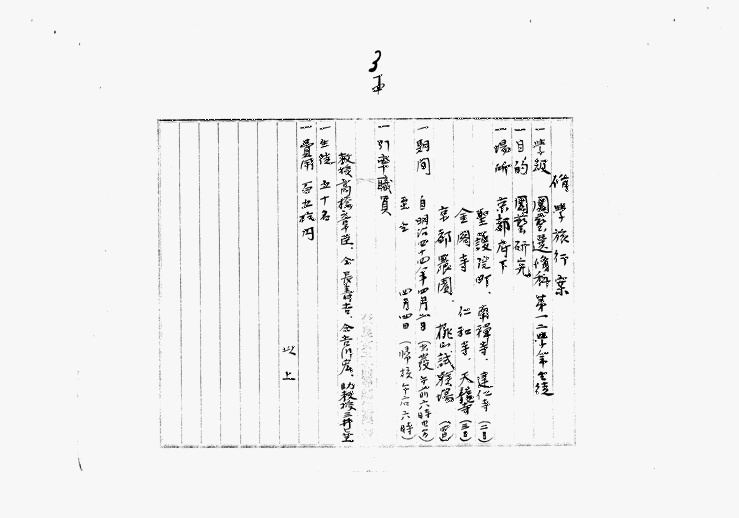 3
修学旅行案
一学級 園藝選修科第一二学年生徒
一目的 園藝研究
一場所 京都府下
聖護院町、南禅寺、建仁寺(二日)
金閣寺 仁和寺、天龍寺(三日)
京都農園、桃山試験場(四日)
一期間 自明治四十四年四月二日(出発午前六時廿分)
至仝 四月四日(帰校午后六時)
一引率職員
教授高橋 仝 仝吉川 助教授三井
一生徒 五十名
一費用 百五拾円
以上